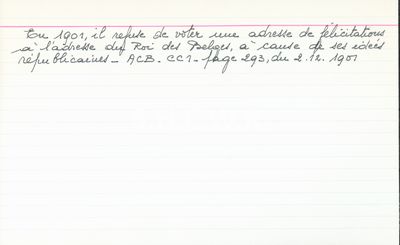 En 1901, il refuse de voter une adresse de félicitations
à l'adresse du Roi des Belges, à cause de ses idées
républicaines - ACB - CC1 - page 293, du 2.12.1901